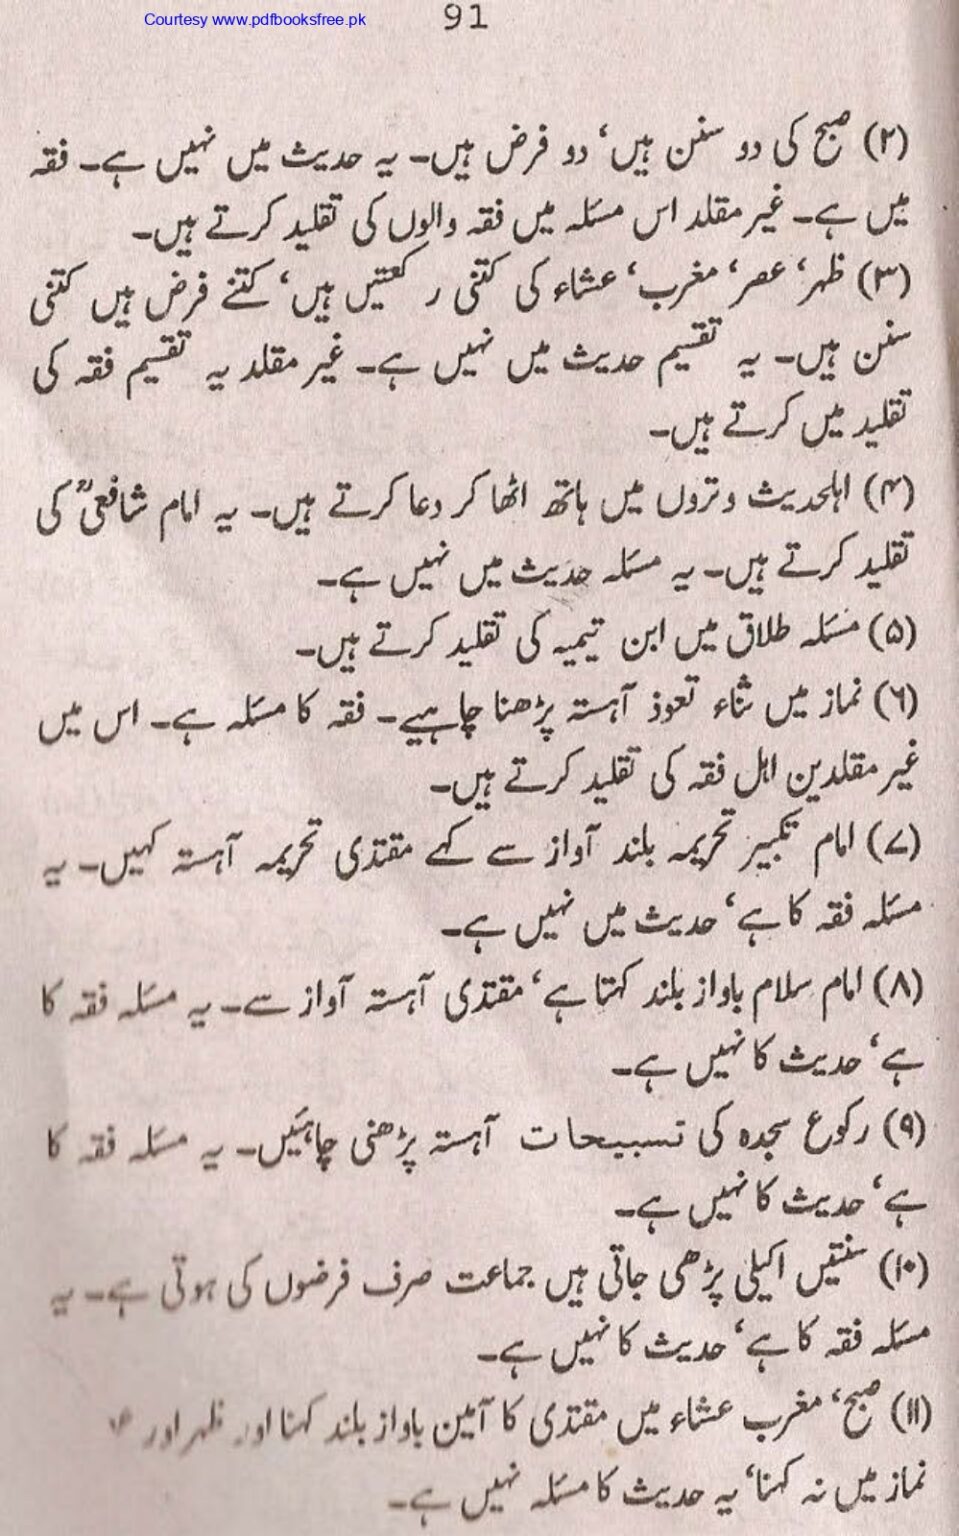 Courtesy www.pdfbooksfree.pk
91
(۲) صبح کی دو سنن ہیں‘ دو فرض ہیں۔ یہ حدیث میں نہیں ہے۔ فقہ
میں ہے۔ غیر مقلد اس مسئلہ میں فقہ والوں کی تقلید کرتے ہیں۔
(۳) ظہر‘ عصر‘ مغرب‘ عشاء کی کتنی رکعتیں ہیں‘ کتنے فرض ہیں کتنی
سنن ہیں۔ یہ تقسیم حدیث میں نہیں ہے۔ غیر مقلد یہ تقسیم فقہ کی
تقلید میں کرتے ہیں۔
(۴) اہلحدیث وتروں میں ہاتھ اٹھا کر دعا کرتے ہیں۔ یہ امام شافعیؒ کی
تقلید کرتے ہیں۔ یہ مسئلہ حدیث میں نہیں ہے۔
(۵) مسئلہ طلاق میں ابن تیمیہ کی تقلید کرتے ہیں۔
(۶) نماز میں ثناء تعوذ آہستہ پڑھنا چاہیے۔ فقہ کا مسئلہ ہے۔ اس میں
غیر مقلدین اہل فقہ کی تقلید کرتے ہیں۔
(۷) امام تکبیر تحریمہ بلند آواز سے کہے مقتدی تحریمہ آہستہ کہیں۔ یہ
مسئلہ فقہ کا ہے‘ حدیث میں نہیں ہے۔
(۸) امام سلام باواز بلند کہتا ہے‘ مقتدی آہستہ آواز سے۔ یہ مسئلہ فقہ کا
ہے‘ حدیث کا نہیں ہے۔
(۹) رکوع سجدہ کی تسبیحات آہستہ پڑھنی چاہئیں۔ یہ مسئلہ فقہ کا
ہے‘ حدیث کا نہیں ہے۔
(۱۰) سنتیں اکیلی پڑھی جاتی ہیں جماعت صرف فرضوں کی ہوتی ہے۔ یہ
مسئلہ فقہ کا ہے‘ حدیث کا نہیں ہے۔
(۱۱) صبح‘ مغرب عشاء میں مقتدی کا آمین باواز بلند کہنا اور ظہر اور
نماز میں نہ کہنا‘ یہ حدیث کا مسئلہ نہیں ہے۔